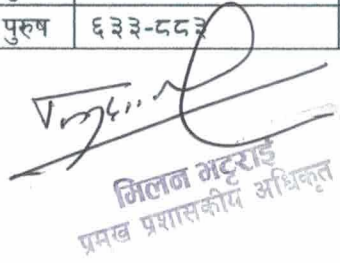 पुरुष ६३३-८८३
मिलन भट्टराई
प्रमुख प्रशासकीय अधिकृत